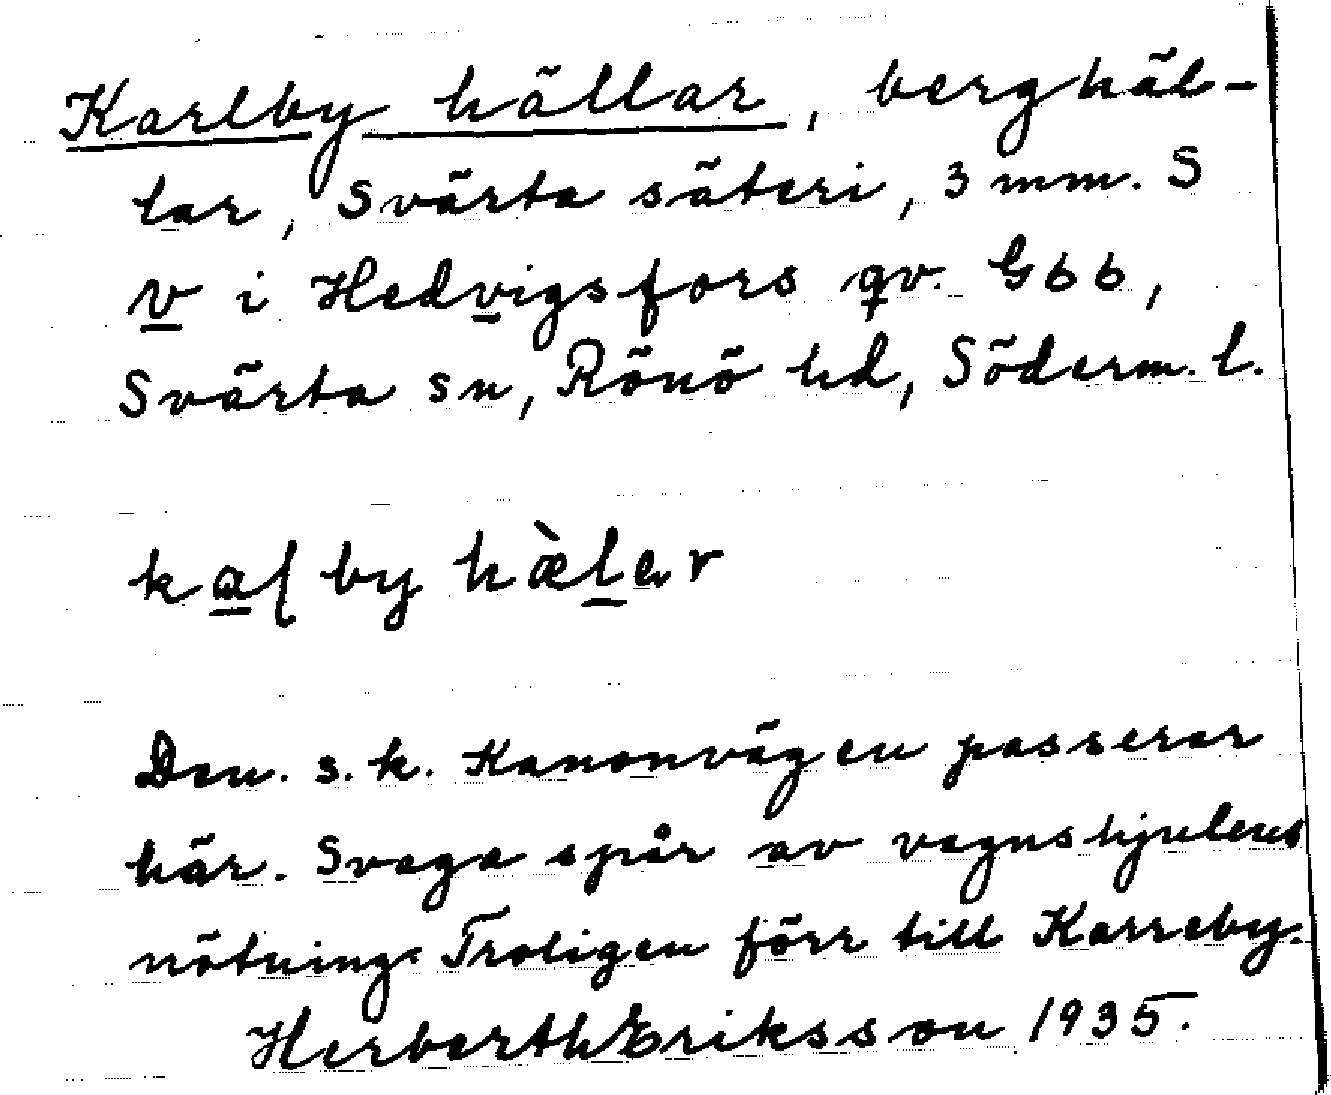 Karlby hällar, berghäl-
lar, Svärta säteri, 3 mm. S
v i Hedvigsfors qv. G66,
Svärta sn, Rönö hd, Söderm. l.
kaſ by hæ̀ler
Den. s.k. Kanonvägen passerar
här. Svaga spår av vagnshjulens
nötning. Troligen förr till Karreby.
Herberth Eriksson 1935.